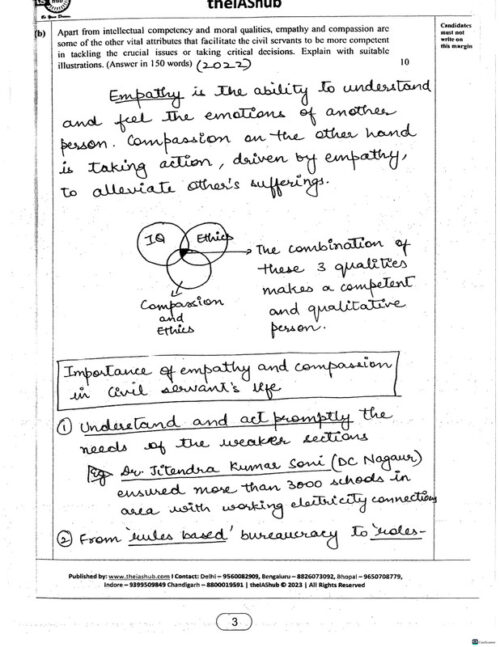 theIAShub
Candidates
must not
write on
this margin
(b) Apart from intellectual competency and moral qualities, empathy and compassion are
some of the other vital attributes that facilitate the civil servants to be more competent
in tackling the crucial issues or taking critical decisions. Explain with suitable
illustrations. (Answer in 150 words) (2022) 10
Empathy is the ability to understand
and feel the emotions of another
person. Compassion on the other hand
is taking action, driven by empathy,
to alleviate other's sufferings.
IQ Ethics
The combination of
these 3 qualities
makes a competent
and qualitative
person.
Compassion
and
Ethics
Importance of empathy and compassion
in civil servant's life
① Understand and act promptly the
needs of the weaker sections
Eg Dr. Jitendra Kumar Soni (DC Nagaur)
ensured more than 3000 schools in
area with working electricity connections
② From 'rules based' bureaucracy to 'roles-
Published by: www.theiashub.com I Contact: Delhi – 9560082909, Bengaluru – 8826073092, Bhopal – 9650708779,
Indore – 9399509849 Chandigarh – 8800019591 | theIAShub © 2023 | All Rights Reserved
3